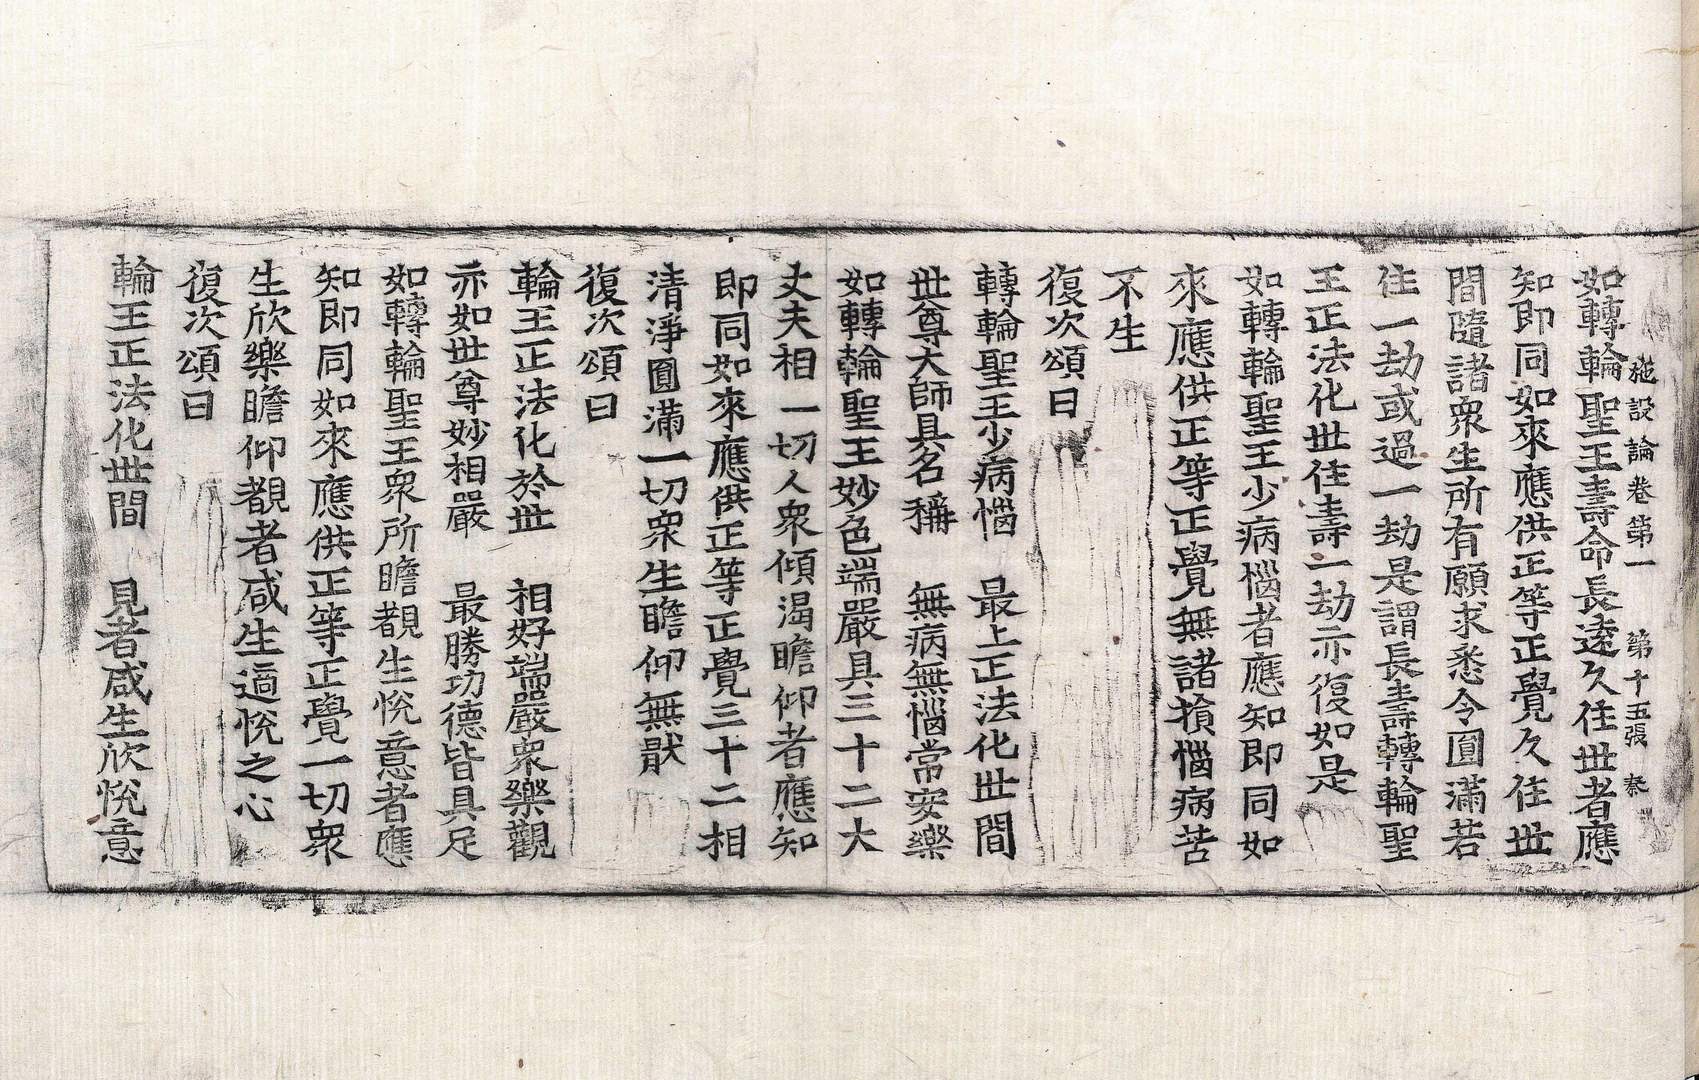 施設論卷第一　第十五張　秦
如轉輪聖王壽命長遠久住世者應
知即同如來應供正等正覺久住世
間隨諸衆生所有願求悉令圓滿若
住一劫或過一劫是謂長壽轉輪聖
王正法化世住壽一劫亦復如是
如轉輪聖王少病惱者應知即同如
來應供正等正覺無諸損惱病苦
不生
復次頌曰
轉輪聖王少病惱　最上正法化世間
世尊大師具名稱　無病無惱常安樂
如轉輪聖王妙色端嚴具三十二大
丈夫相一切人衆傾渴瞻仰者應知
即同如來應供正等正覺三十二相
清淨圓滿一切衆生瞻仰無猒
復次頌曰
輪王正法化於世　相好端嚴衆樂觀
亦如世尊妙相嚴　最勝功德皆具足
如轉輪聖王衆所瞻覩生悅意者應
知即同如來應供正等正覺一切衆
生欣樂瞻仰覩者咸生適悅之心
復次頌曰
輪王正法化世間　見者咸生欣悅意